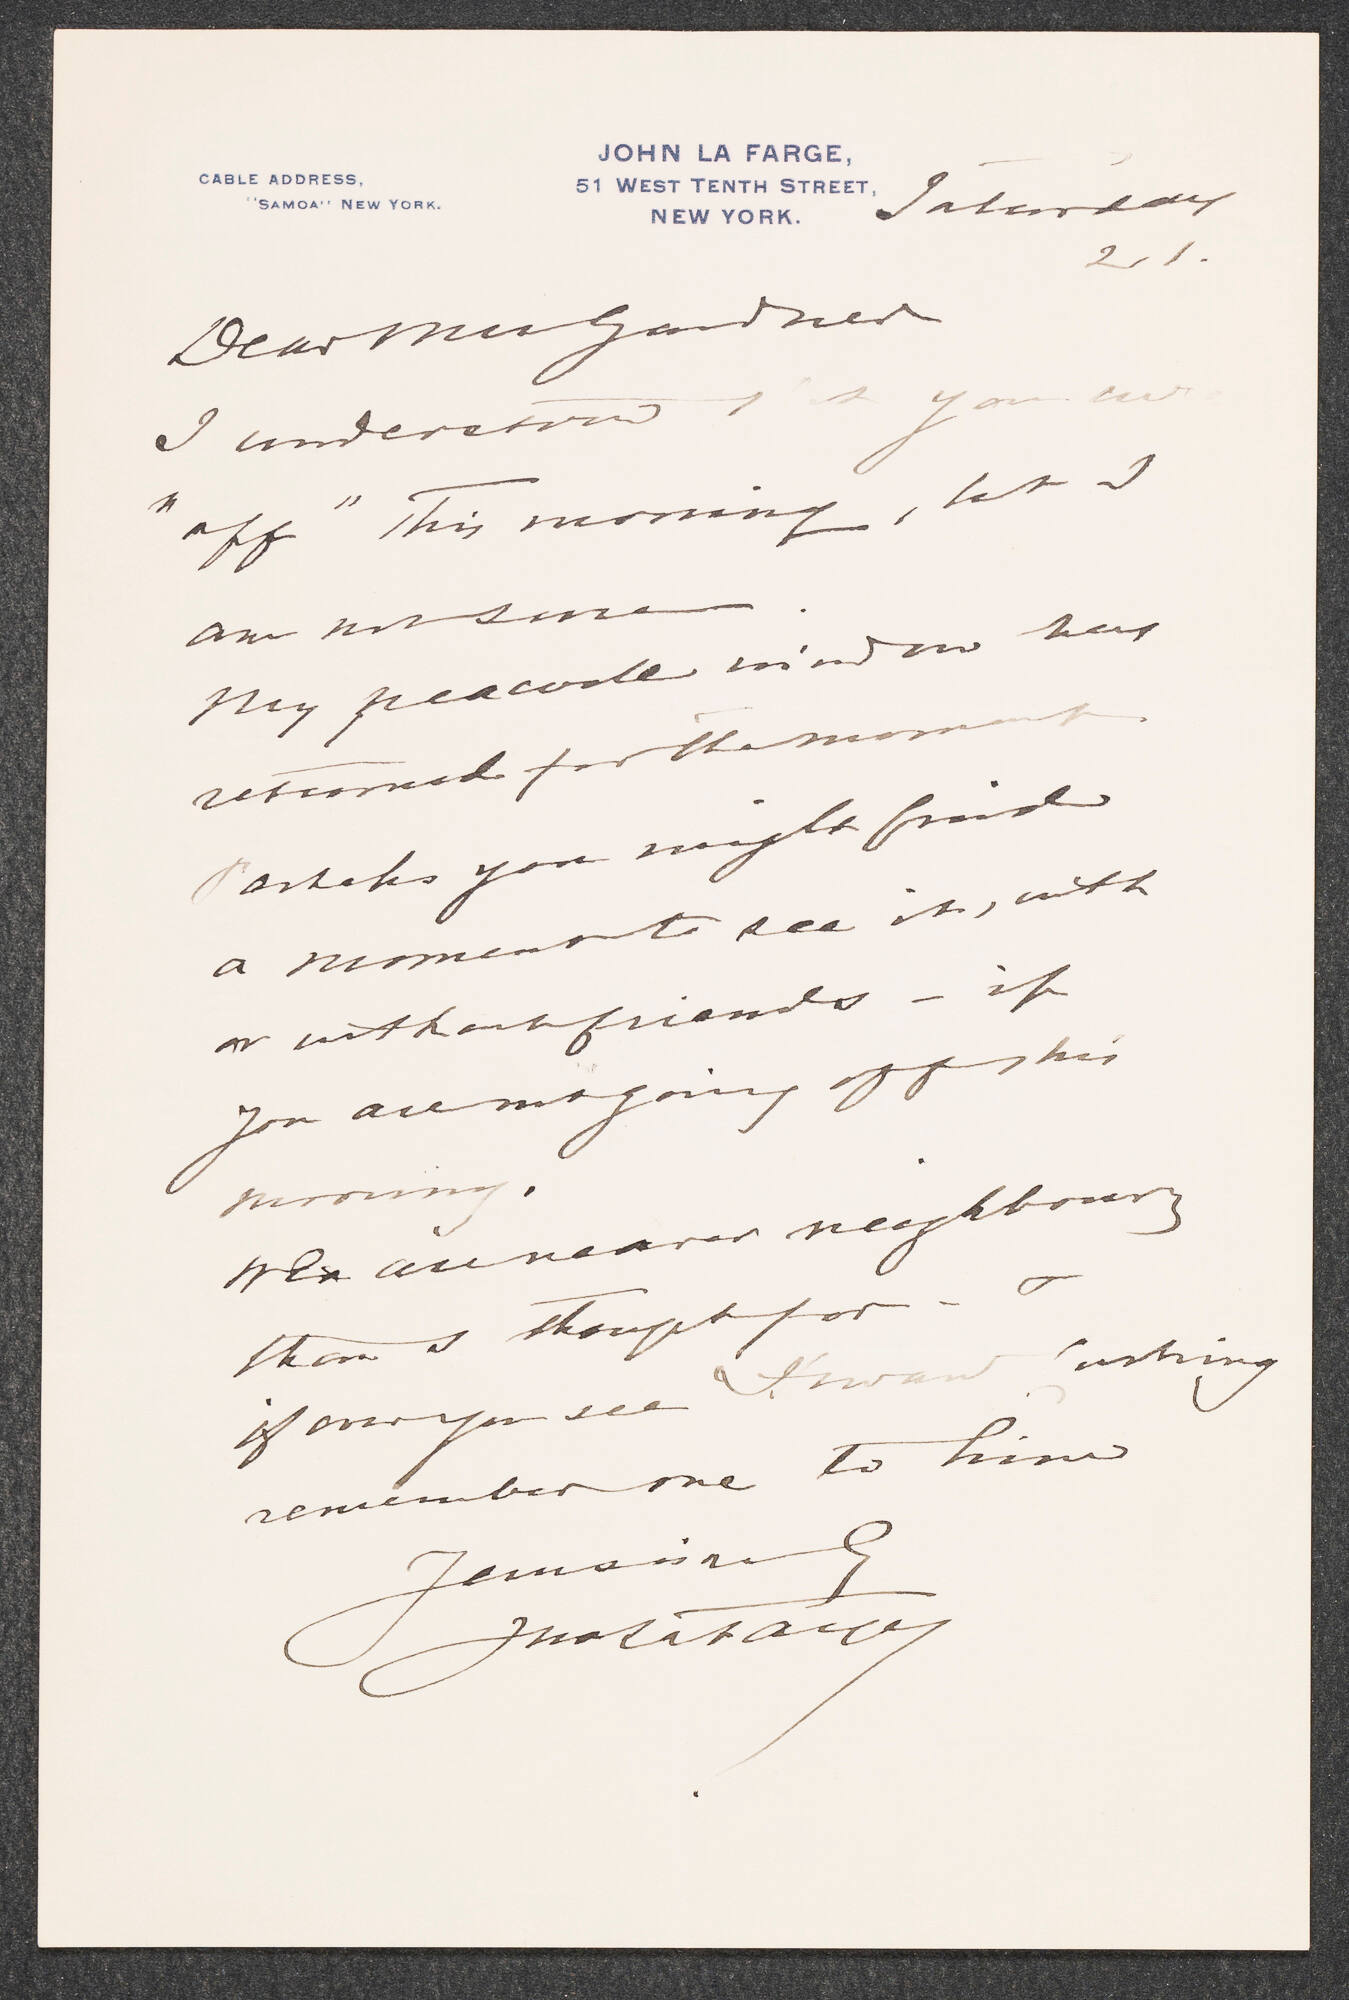 CABLE ADDRESS,
"SAMOA" NEW YORK.
JOHN LA FARGE,
51 WEST TENTH STREET,
NEW YORK.
Saturday
21.
Dear Mrs Gardner
I understand that you are
"off" this morning, but I
am not sure.
My peacock window has
returned for the moment.
Perhaps you might find
a moment to see it, with
or without friends – if
you are not going off this
morning.
We are nearer neighbours
than I thought for –
if ever you see Howard Cushing
remember me to him
Yours sincerely
Jno La Farge